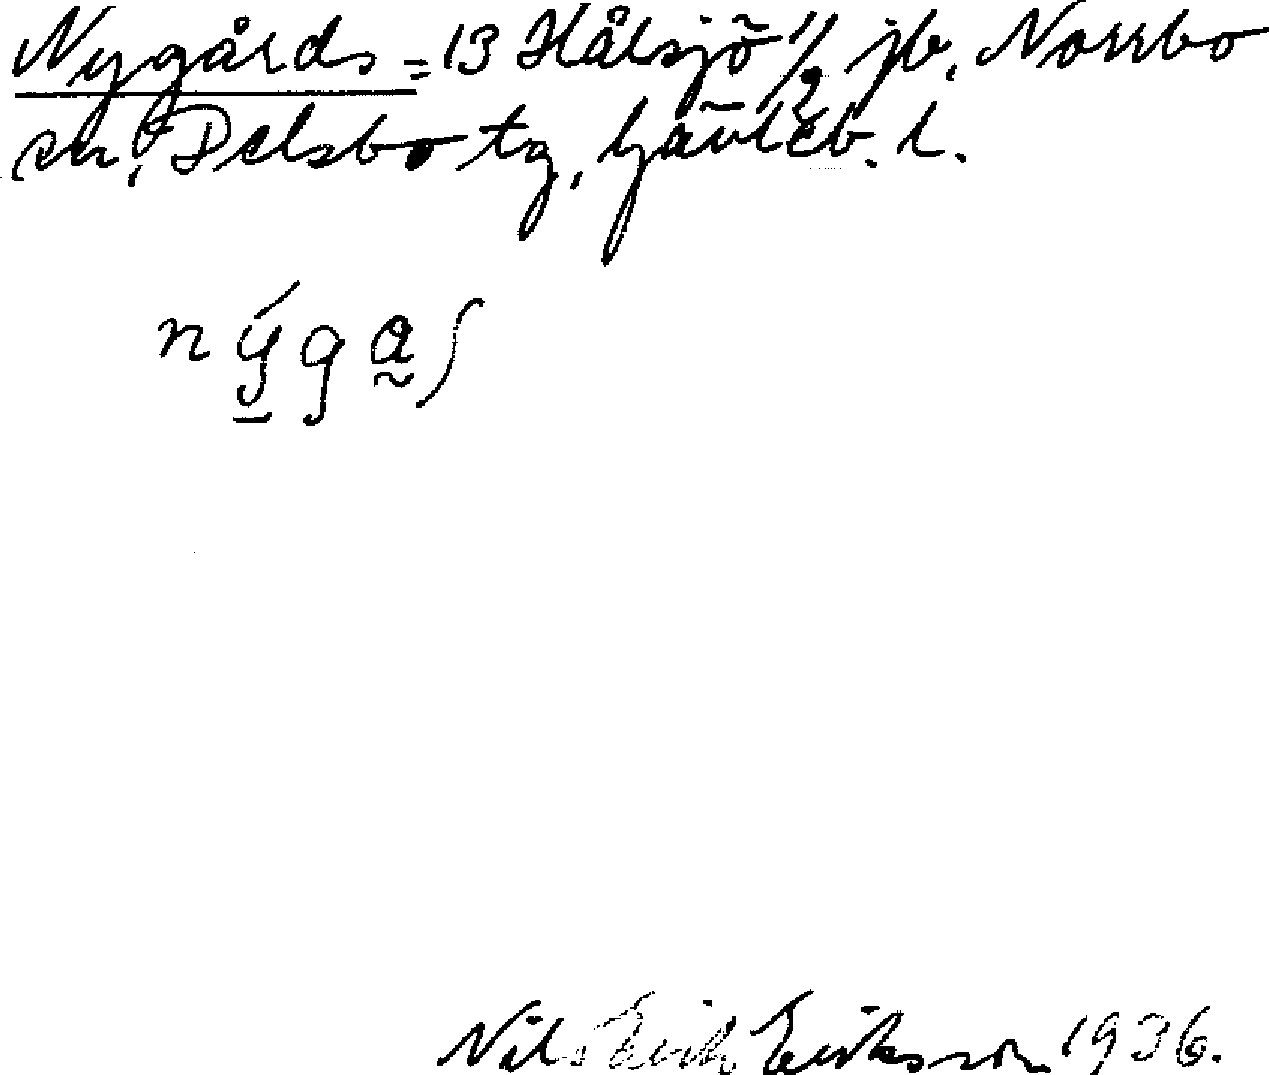 Nygårds = 13 Hålsjö 1/2 jb, Norrbo
sn, Delsbo tg, Gävleb. l.
nýga̰ʃ
Nils Erik Eriksson 1936.